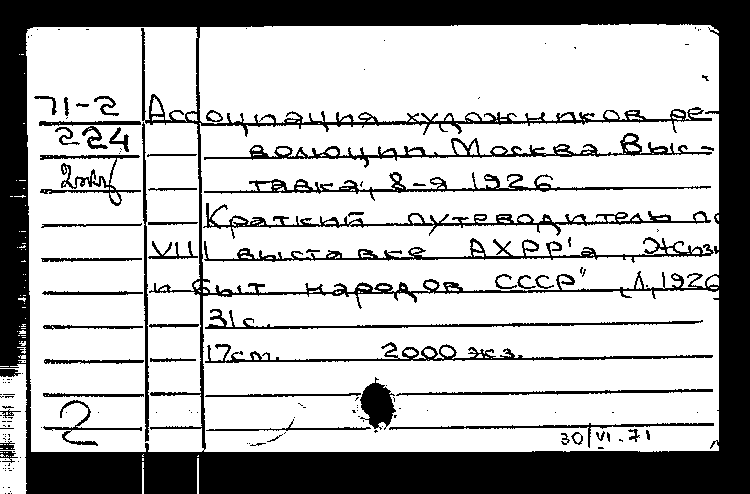 71-2 Ассоциация художников ре-
224 волюции. Москва Выс-
2 экз тавка, 8-я 1926
Краткий путеводитель по
VIII выставке АХРР'а „Жизн
и быт народов СССР" Л., 1926
31 с.
17 cm. 2000 экз.
2
30/VI-71